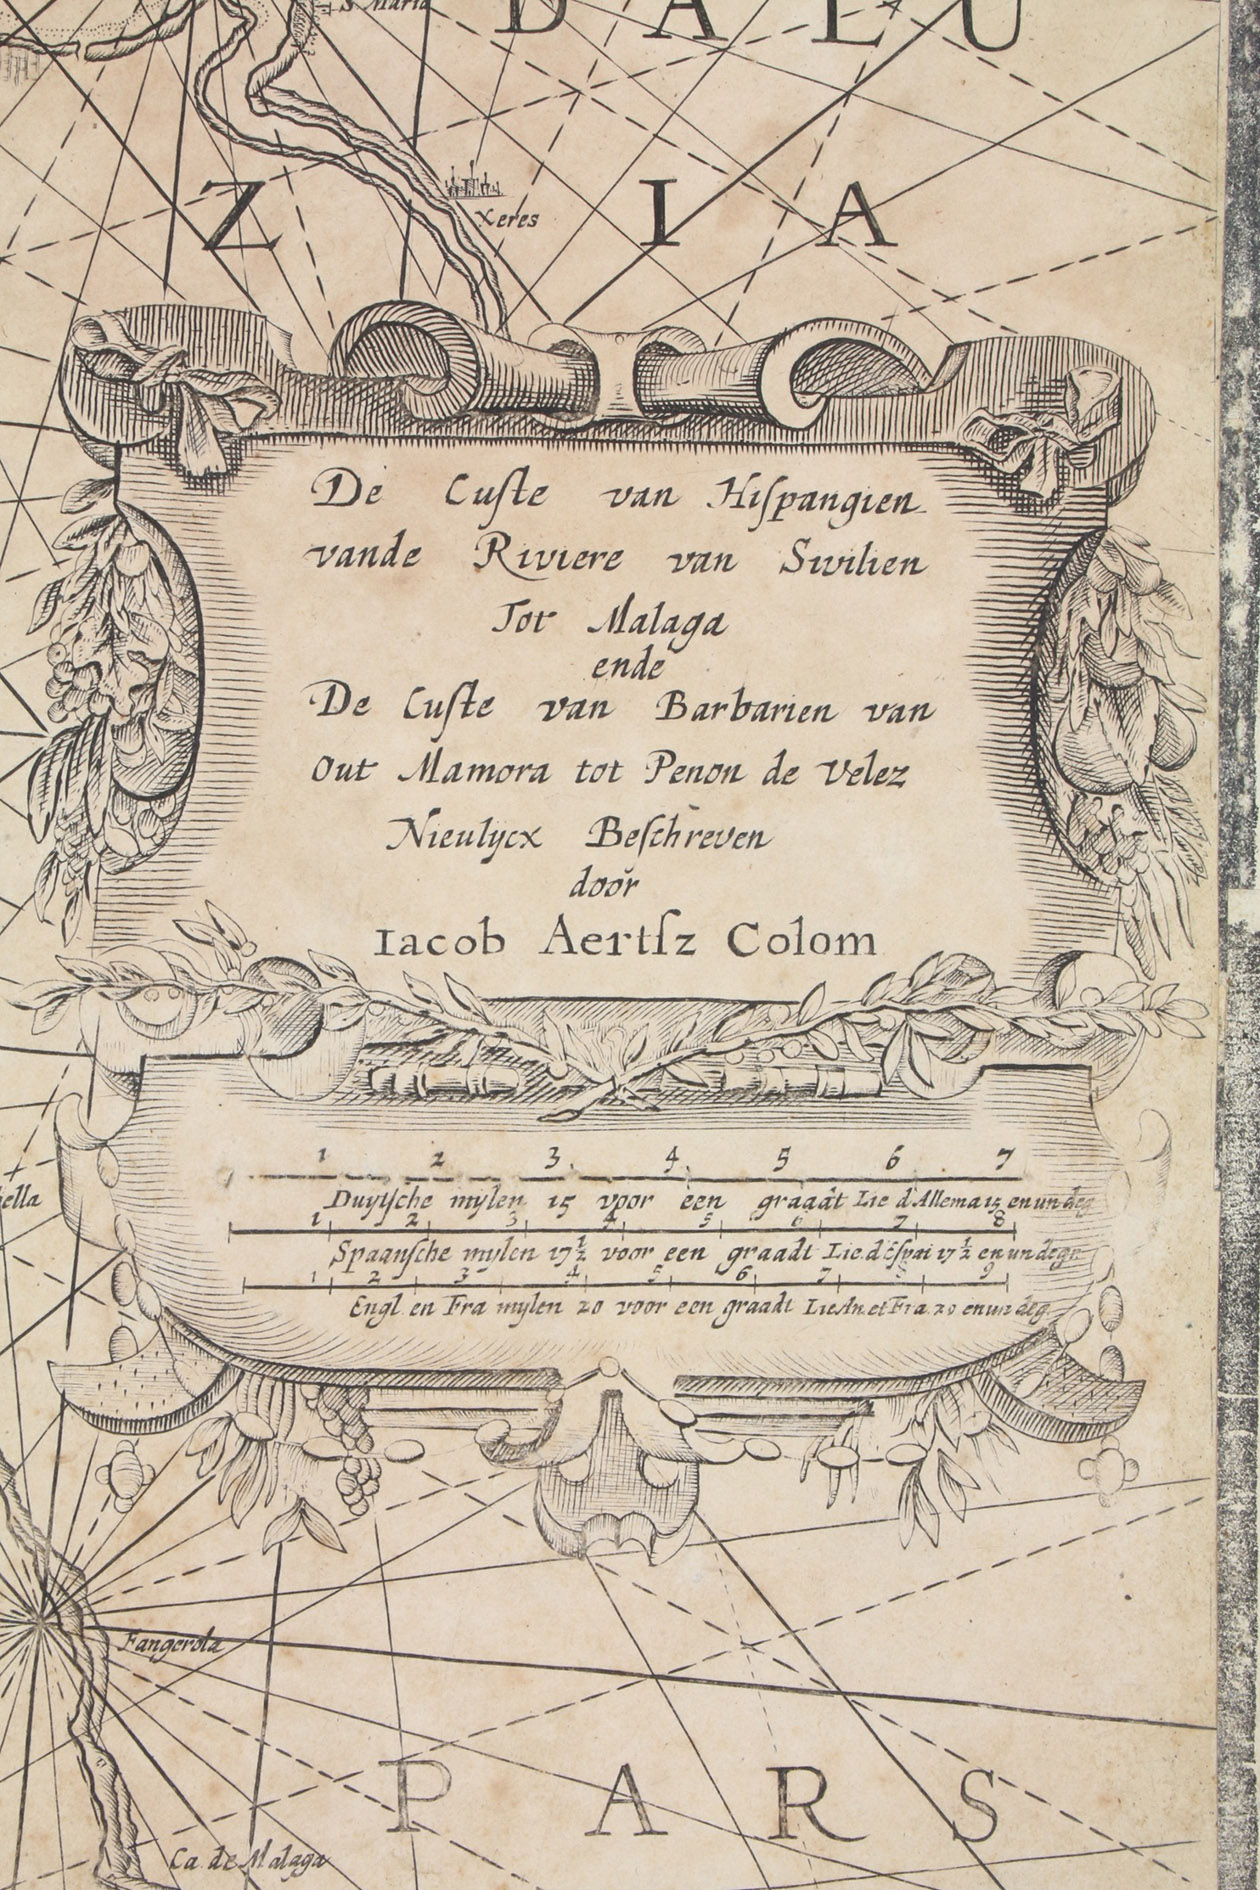 S Maria
D A L U
Xeres
Z I A
De Cuſte van Hiſpangien
vande Riviere van Sivilien
Tot Malaga
ende
De Cuſte van Barbarien van
Out Mamora tot Penon de Velez
Nieulijcx Beſchreven
door
Iacob Aertſz Colom
1 2 3 4 5 6 7
Duytſche mylen 15 voor een graadt Lie d'Allema 15 en un deg
1 2 3 4 5 6 7 8
Spaanſche mylen 17½ voor een graadt Lie d'Eſpai 17½ en un degr
1 2 3 4 5 6 7 8 9
Engl. en Fra mylen 20 voor een graadt Lie An. et Fra. 20 en un deg
ella
Fangerola
P A R S
Ca. de Malaga